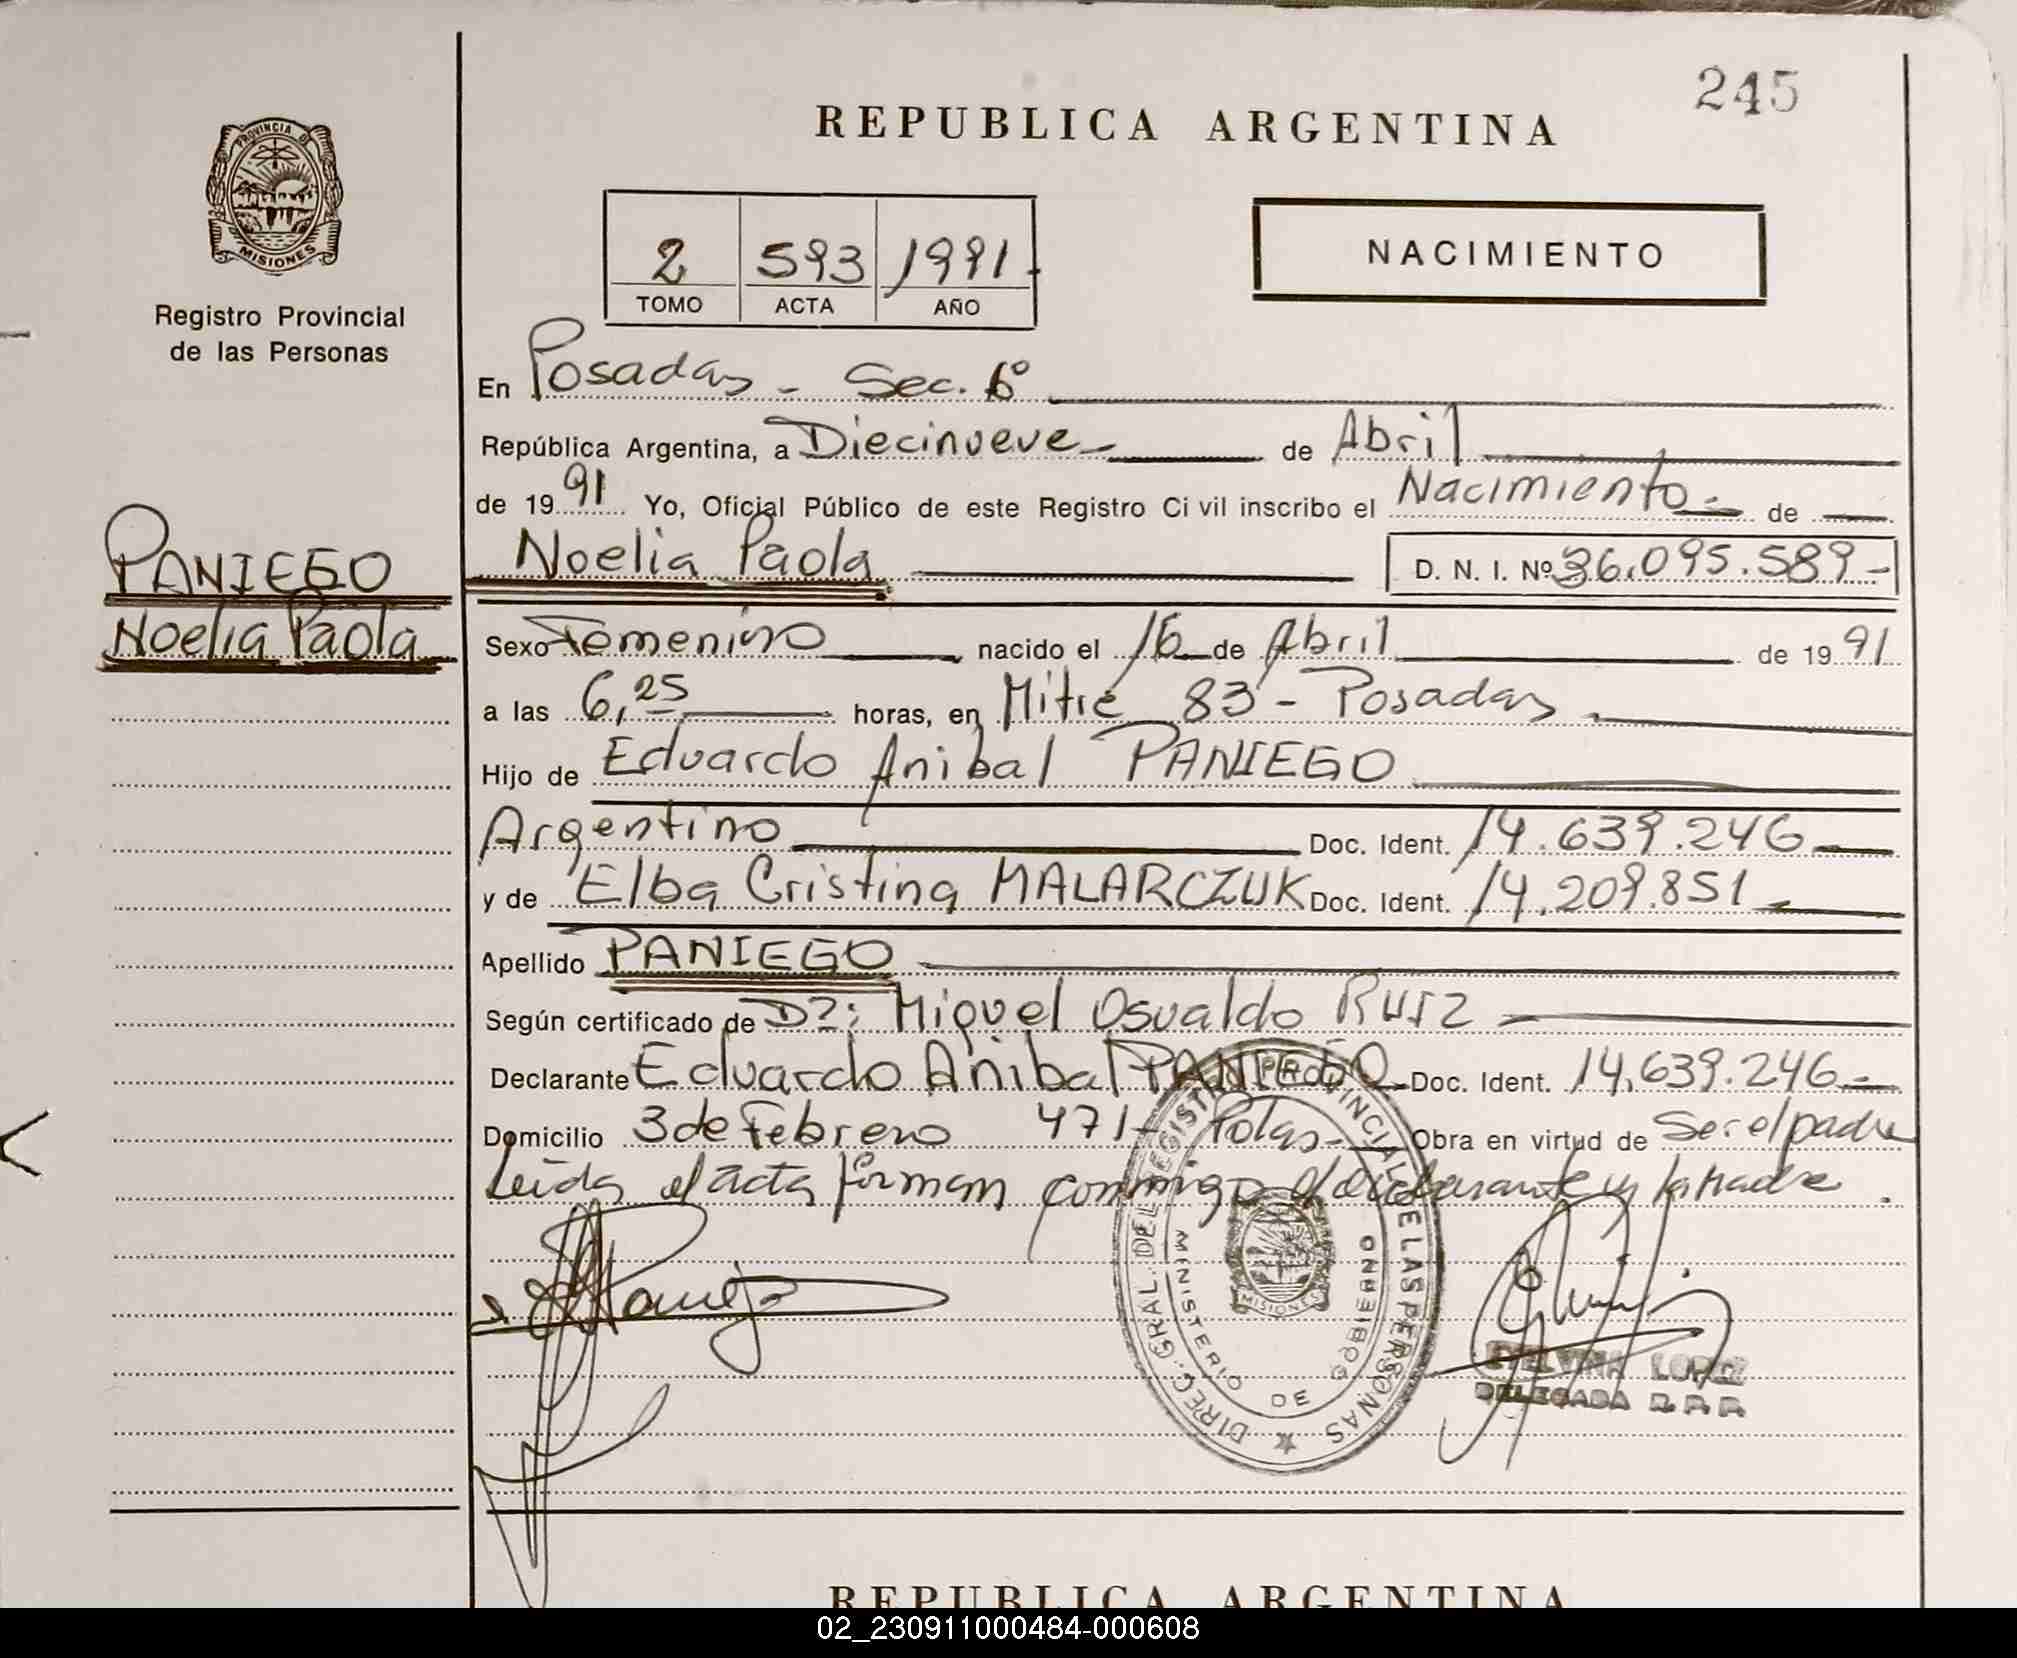 245
REPUBLICA ARGENTINA
PROVINCIA DE
MISIONES
Registro Provincial
de las Personas
2 593 1991
TOMO ACTA AÑO
NACIMIENTO
En Posadas - Sec. 6º
República Argentina, a Diecinueve de Abril
de 1991 Yo, Oficial Público de este Registro Civil inscribo el Nacimiento de
PANIEGO
Noelia Paola
Noelia Paola D. N. I. Nº 36.095.589-
Sexo Femenino nacido el 16 de Abril de 1991
a las 6,25 horas, en Mitre 83 - Posadas
Hijo de Eduardo Anibal PANIEGO
Argentino Doc. Ident. 14.639.246
y de Elba Cristina MALARCZUK Doc. Ident. 14.209.851
Apellido PANIEGO
Según certificado de Miguel Osvaldo RUIZ
Declarante Eduardo Anibal PANIEGO Doc. Ident. 14.639.246
Domicilio 3 de Febrero 471- Pdas- Obra en virtud de Ser el padre
Leída el acta firman conmigo el declarante y la madre.
DIREC. GRAL. DEL REGISTRO PROVINCIAL DE LAS PERSONAS
MINISTERIO DE GOBIERNO
MISIONES
LOPEZ
DELEGADA R.P.P.
REPUBLICA ARGENTINA
02_230911000484-000608